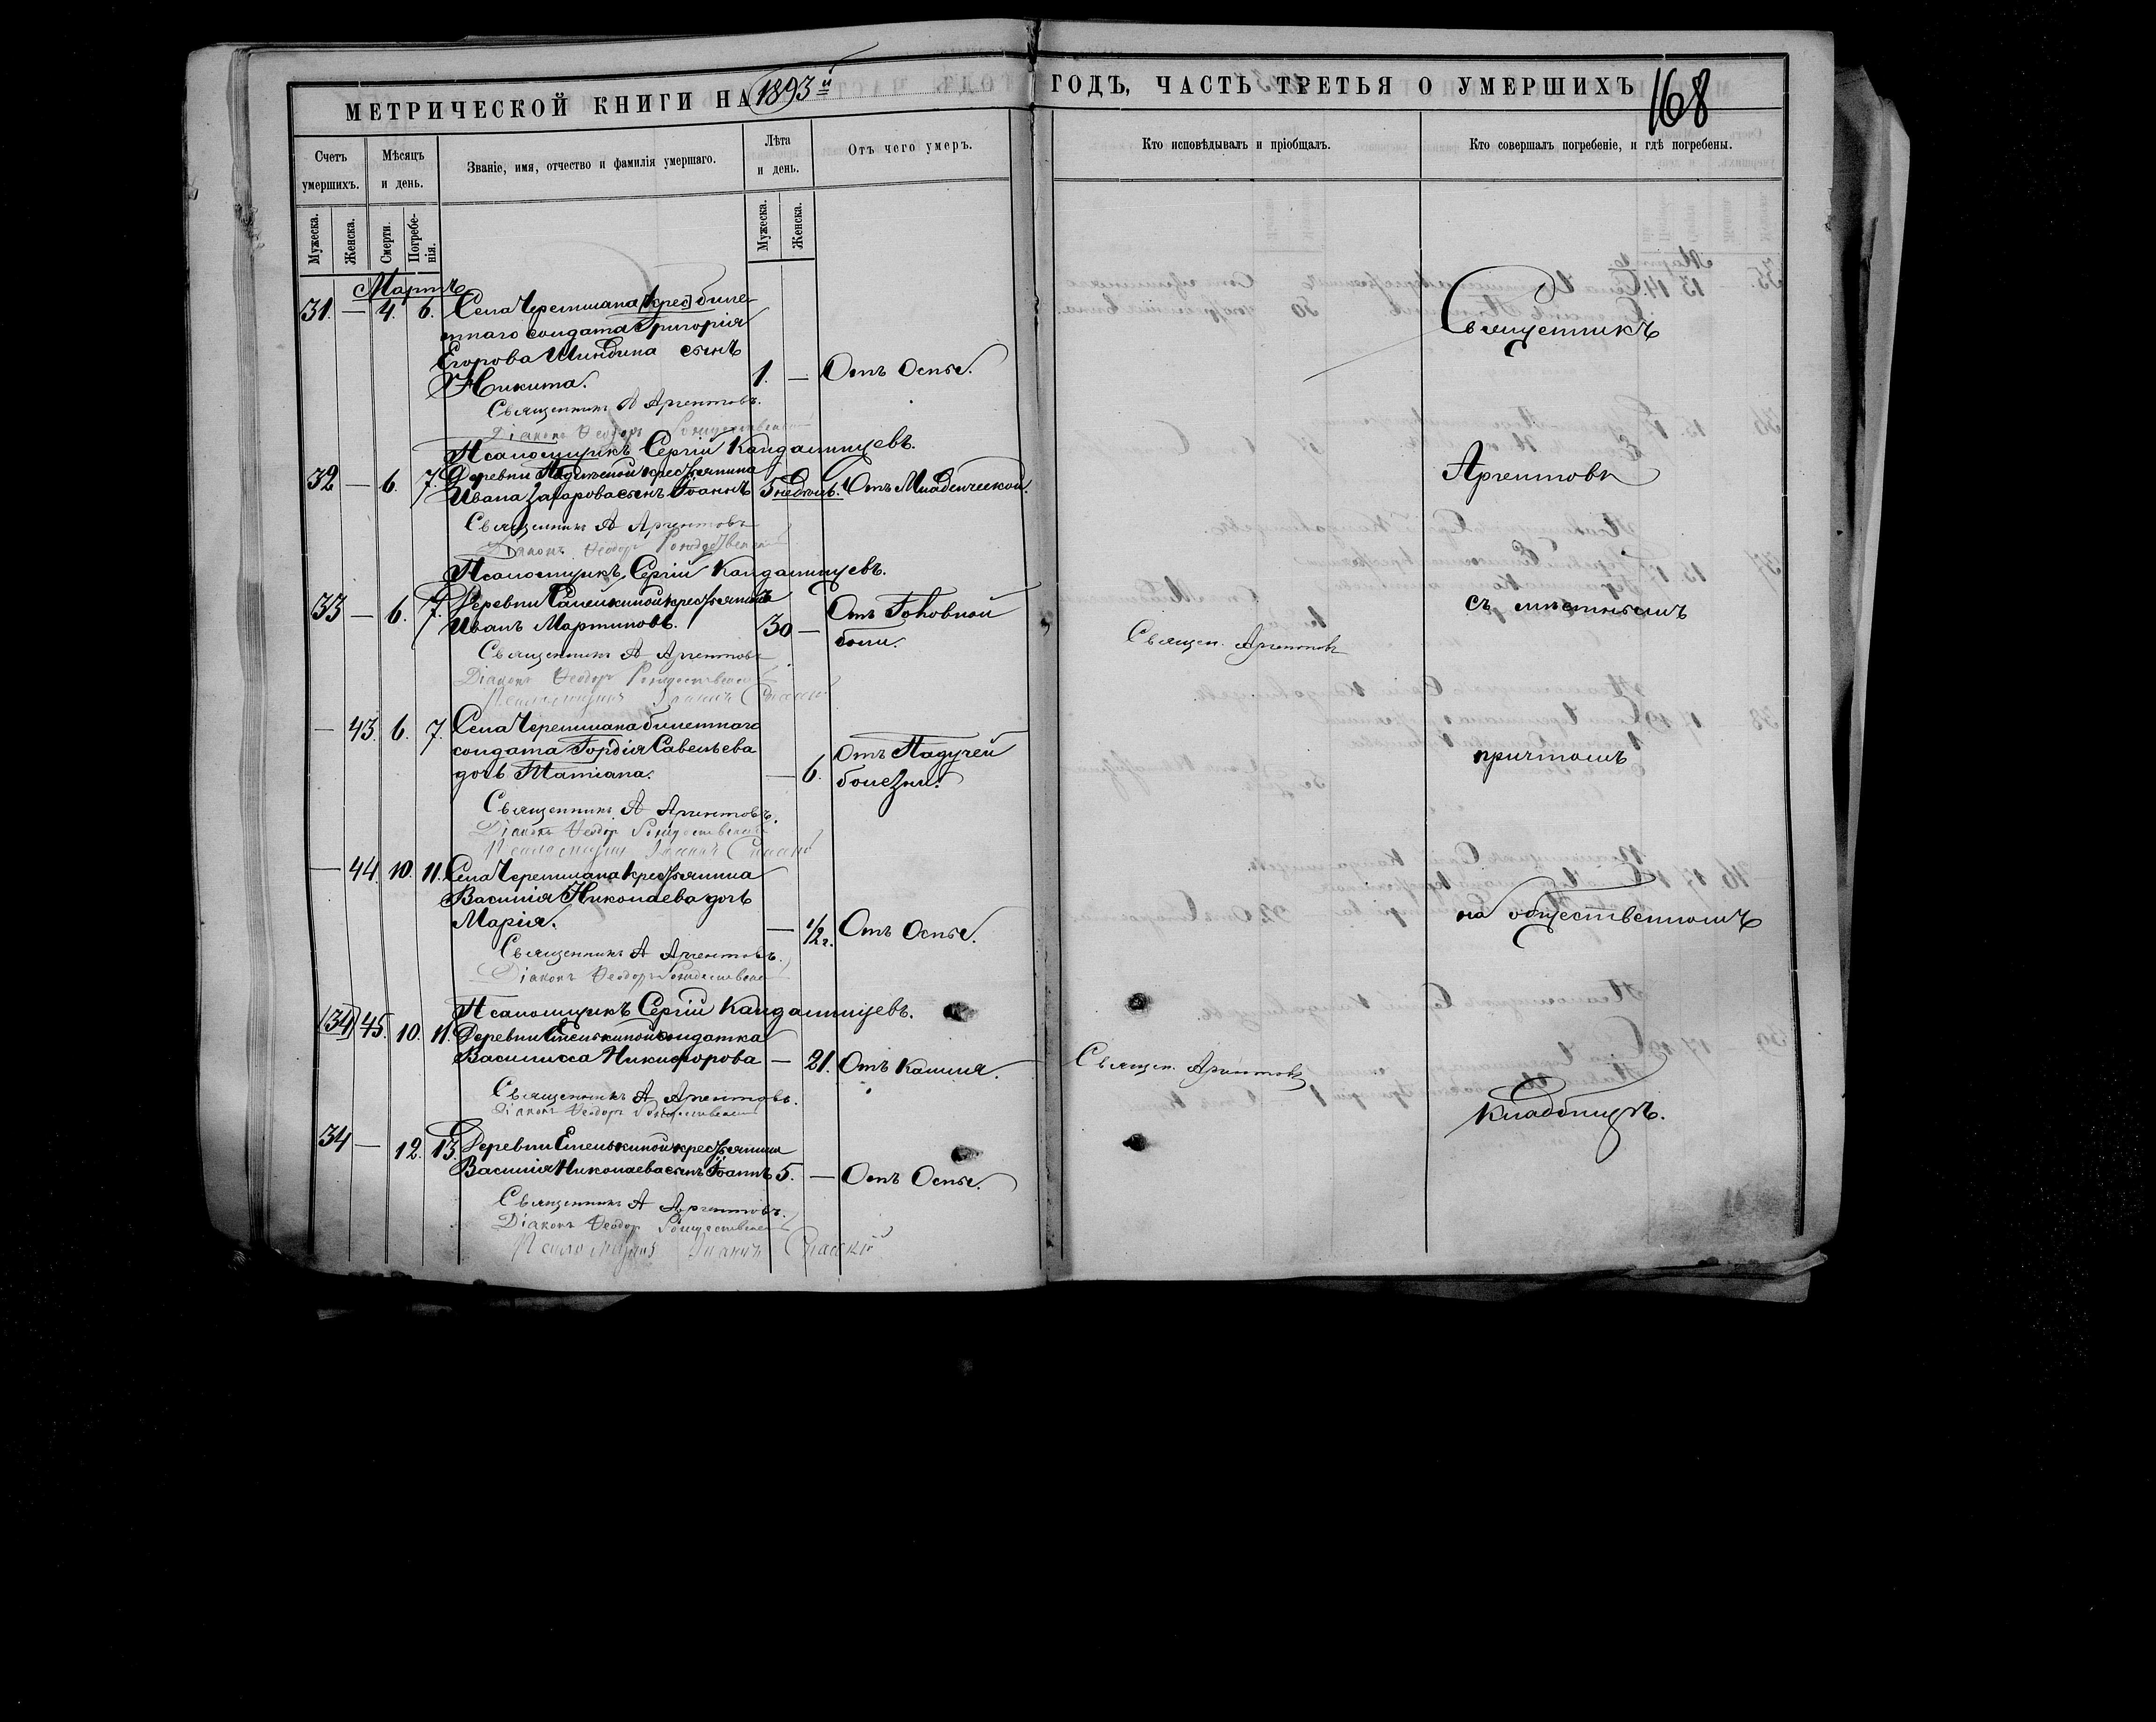 МЕТРИЧЕСКОЙ КНИГИ НА 1893й ГОДЪ, ЧАСТЬ ТРЕТЬЯ О УМЕРШИХЪ 168
Счетъ умершихъ.
Мужеска.
Женска.
Мѣсяцъ и день.
Смерти.
Погребенія.
Званіе, имя, отчество и фамилія умершаго.
Лѣта и день.
Мужеска.
Женска.
Отъ чего умеръ.
Кто исповѣдывалъ и пріобщалъ.
Кто совершалъ погребеніе, и гдѣ погребены.
Мартъ
31. — 4. 6. Села Черемшана [крес] биле
тнаго солдата Григорія
Егорова Шиндина сынъ
Никита. 1. — Отъ Оспы.
Священникъ А Аргентовъ.
Діаконъ Ѳеодоръ Рождественскій
Псаломщикъ Сергій Кандалинцевъ.
32 — 6. 7. Деревни крестьянина
Ивана Захарова сынъ Іоаннъ 5 недѣль. Отъ Младенческой.
Священникъ А Аргентовъ
Діаконъ Ѳеодоръ Рождественскій
Псаломщикъ Сергій Кандалинцевъ.
33 — 6. 7. Деревни крестьянинъ
Иванъ Мартиновъ. 30 — Отъ Головной
боли.
Священ. Аргентовъ
Священникъ А Аргентовъ
Діаконъ Ѳеодоръ Рождественскій
Псаломщикъ Іоаннъ Спасскій
— 43. 6. 7. Села Черемшана билетнаго
солдата Гордія Савельева
дочь Татіана. — 6. Отъ Падучей
болезни.
Священникъ А Аргентовъ.
Діаконъ Ѳеодоръ Рождественскій
Псаломщикъ Іоаннъ Спасскій
— 44. 10. 11. Села Черемшана крестьянина
Василія Николаева дочь
Марія. — 1/2 г. Отъ Оспы.
Священникъ А Аргентовъ.
Діаконъ Ѳеодоръ Рождественскій
Псаломщикъ Сергій Кандалинцевъ.
(34) 45. 10. 11. Деревни Емелькиной солдатка
Василисса Никифорова — 21. Отъ Кашля.
Священ. Аргентовъ
Священникъ А Аргентовъ.
Діаконъ Ѳеодоръ Рождественскій
34 — 12. 13. Деревни Емелькиной крестьянина
Василія Николаева сынъ Іоаннъ 5. — Отъ Оспы.
Священникъ А Аргентовъ.
Діаконъ Ѳеодоръ Рождественскій
Псаломщикъ Іоаннъ Спасскій
Священникъ
Аргентовъ
съ мѣстнымъ
причтомъ
на общественномъ
кладбищѣ.